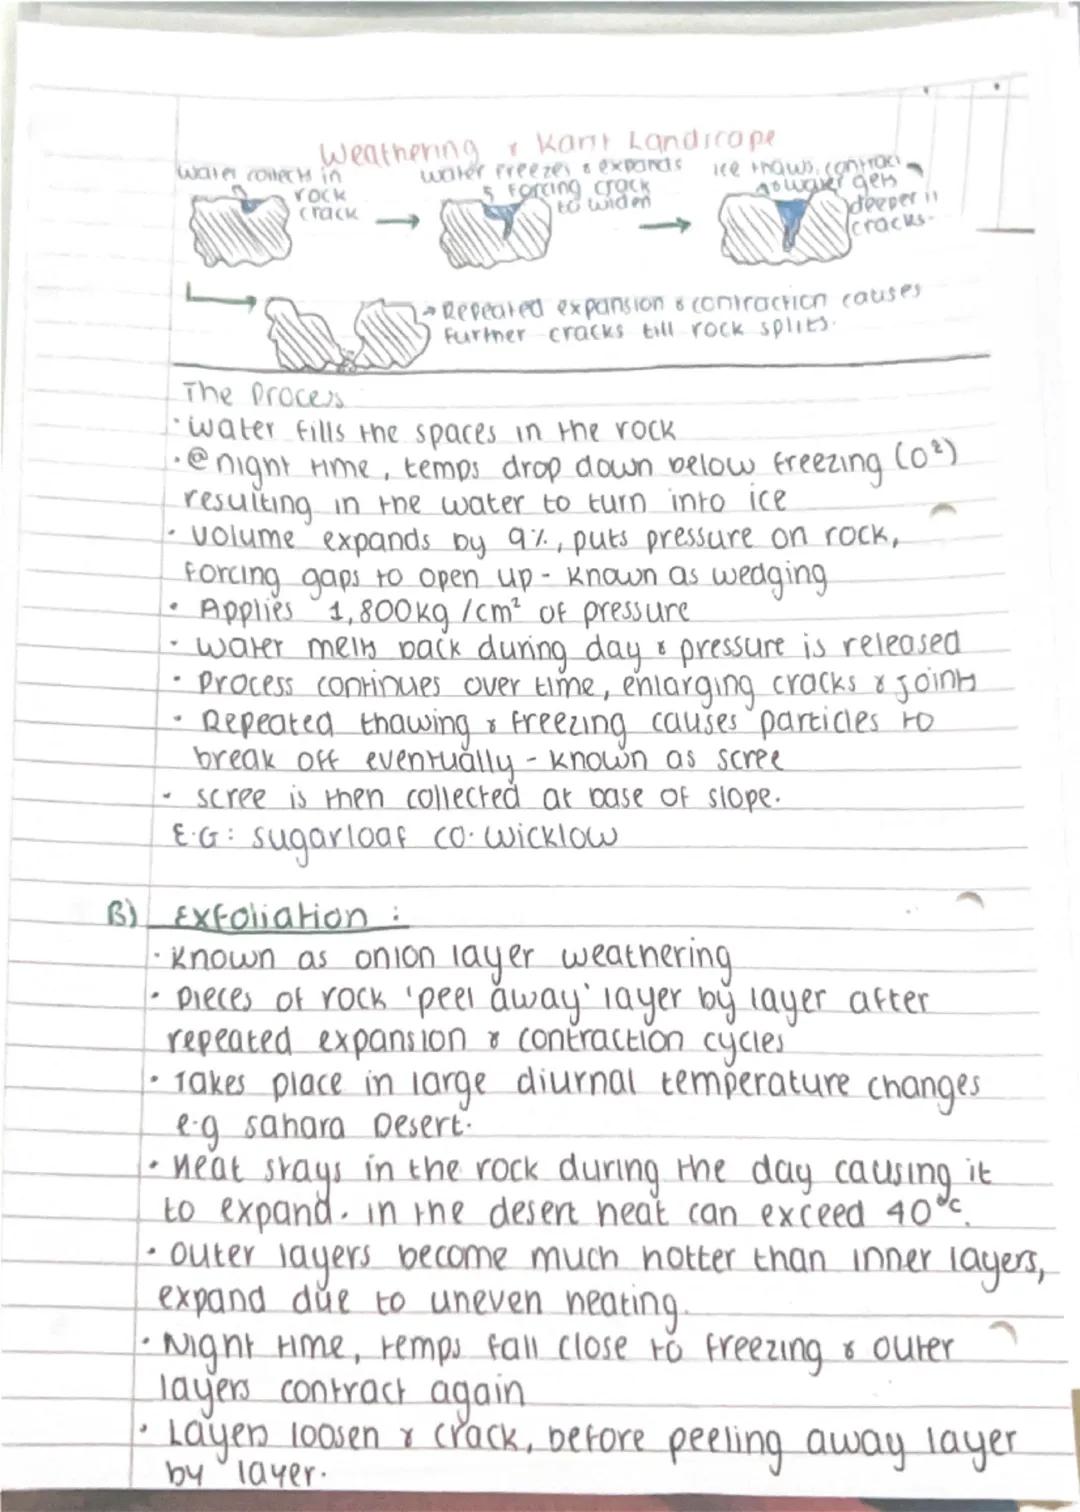 Weathering & Karst Landscape
water collects in
rock
crack
water freezes & expands
forcing crack
to widen
ice thaws, contract
so water gets
deeper in
cracks.
Repeated expansion & contraction causes
further cracks till rock splits.
The Process
· water fills the spaces in the rock
· @ night time, temps drop down below freezing (0°)
resulting in the water to turn into ice
· volume expands by 9%, puts pressure on rock,
forcing gaps to open up - known as wedging
· Applies 1,800kg /cm² of pressure
· water melts back during day & pressure is released
· Process continues over time, enlarging cracks & joints
· Repeated thawing & freezing causes particles to
break off eventually - known as scree
· scree is then collected at base of slope.
E.G: sugarloaf co. wicklow
B) Exfoliation :
· Known as onion layer weathering
· pieces of rock 'peel away' layer by layer after
repeated expansion & contraction cycles
· Takes place in large diurnal temperature changes
e.g sahara Desert.
· Heat stays in the rock during the day causing it
to expand. in the desert heat can exceed 40°c.
· outer layers become much hotter than inner layers,
expand due to uneven heating.
· Night time, temps fall close to freezing & outer
layers contract again
· Layers loosen & crack, before peeling away layer
by layer.